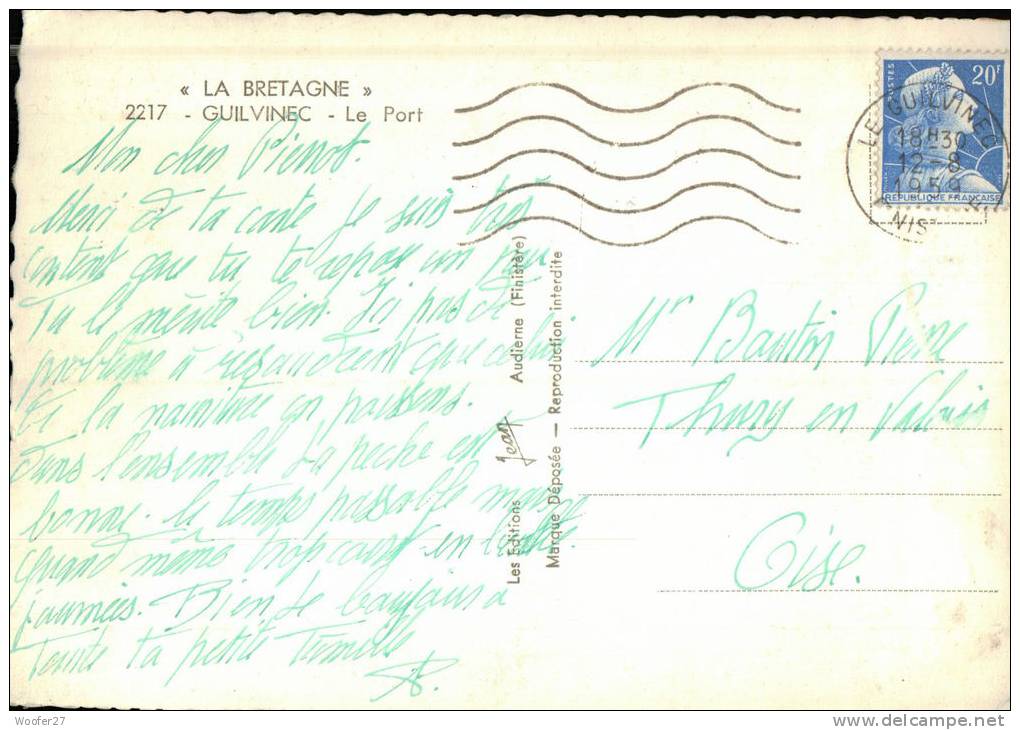 « LA BRETAGNE »
2217 - GUILVINEC - Le Port
Mon cher Pierrot.
Merci de ta carte je suis très
content que tu te repose un peu
Tu le mérite bien. Ici pas de
problème à que celui
de la nourriture en poissons.
dans l'ensemble La pêche est
bonne. le temps passable
quand même trop court en
journées. Bien le bonjour à
Toute ta petite famille
Les Editions Jean Audierne (Finistère)
Marque Déposée — Reproduction interdite
POSTES
20F
REPUBLIQUE FRANÇAISE
LE GUILVINEC
18H30
12-8
1958
FINISTERE
Mr Bautin Pierre
Thury en Valois
Oise.
Woofer27
www.delcampe.net